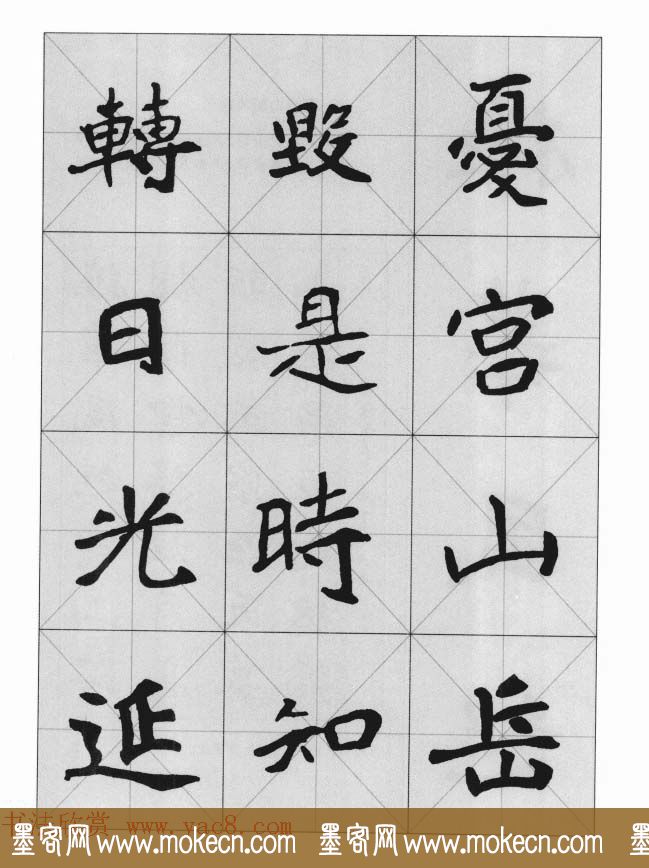 憂宮山岳
毀是時知
轉日光延
书法欣赏 www.yac8.com
墨客网 www.mokecn.com 墨客网 www.mokecn.com